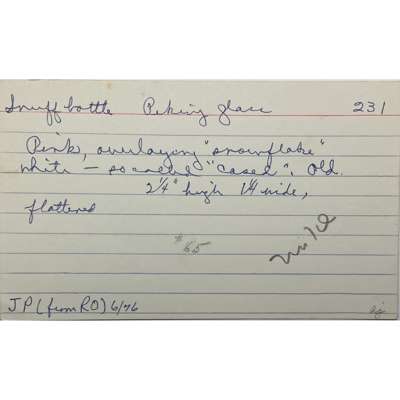 Snuff bottle Peking glass 231
Pink, overlaying "snowflake"
white — so called "cased". Old.
2 1/4" high 1 1/4 wide,
flattened
$65
JP (from RO) 6/76